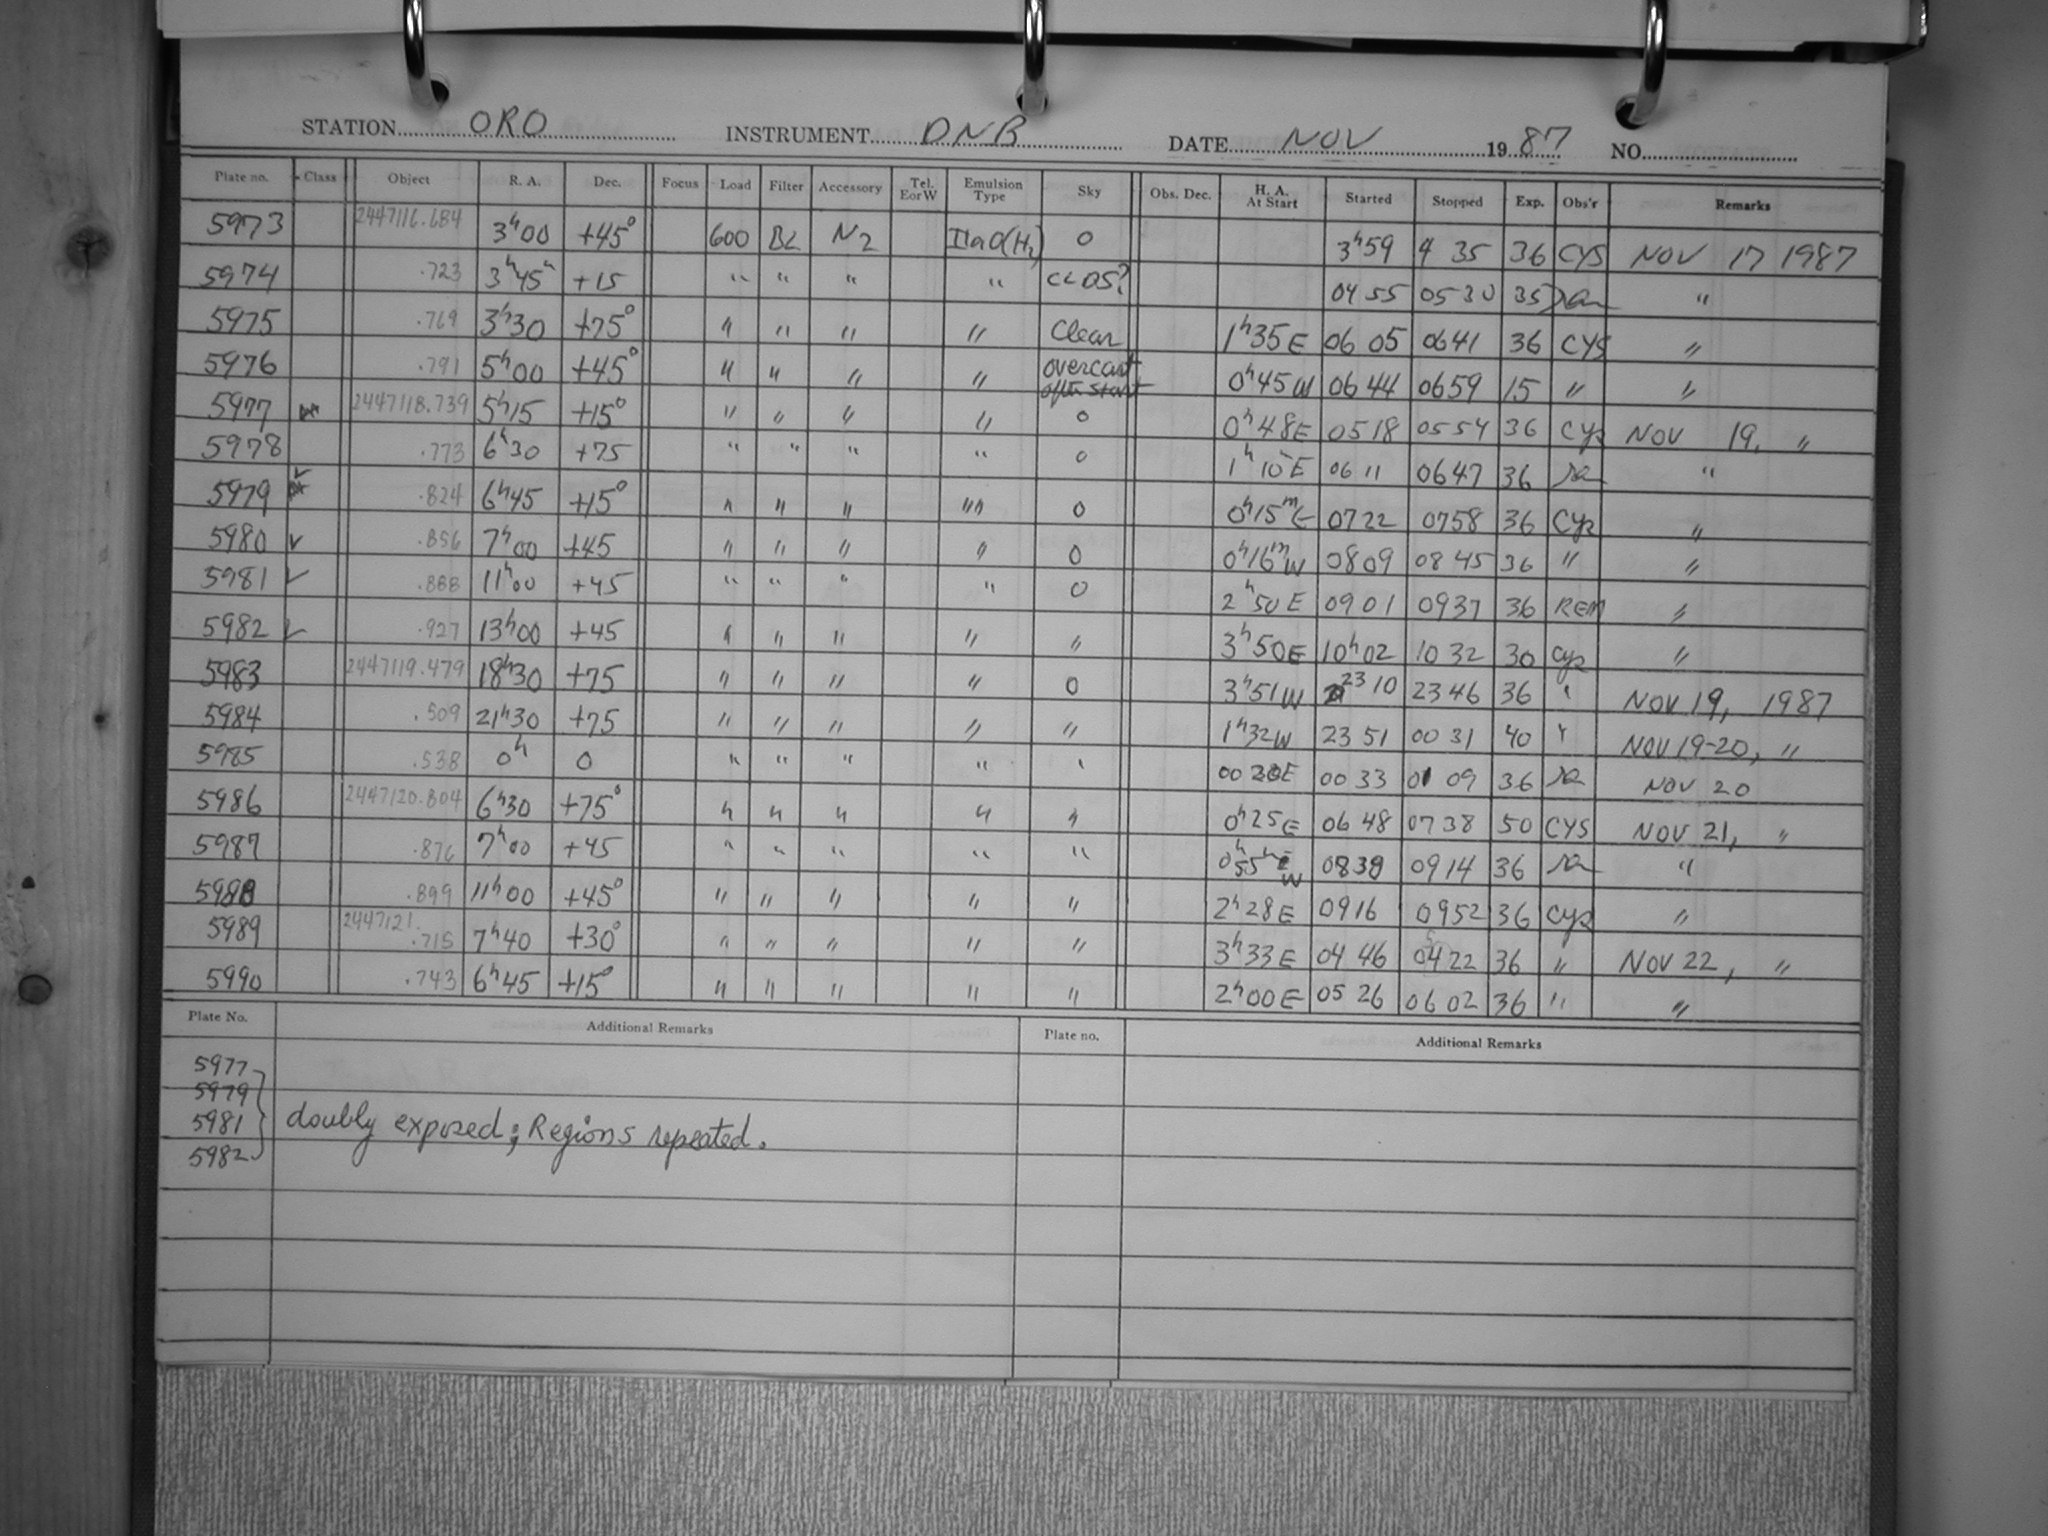 STATION ORO INSTRUMENT DNB DATE NOV 19 87 NO.
Plate no. Class Object R. A. Dec. Focus Load Filter Accessory Tel. EorW Emulsion Type Sky Obs. Dec. H. A. At Start Started Stopped Exp. Obs'r Remarks
5973 2447116.684 3h00 +45° 600 BL N2 IIaO(H2) 0 3h59 4 35 36 CYS NOV 17 1987
5974 .723 3h45 +15 " " " " CLDS? 04 55 05 30 35 "
5975 .769 3h30 +75° " " " " Clear 1h35E 06 05 0641 36 CYS "
5976 .791 5h00 +45° " " " " overcast after start 0h45W 06 44 0659 15 " "
5977 2447118.739 5h15 +15° " " " " 0 0h48E 0518 0554 36 Cys NOV 19, "
5978 .773 6h30 +75 " " " " 0 1h10E 06 11 0647 36 "
5979 .824 6h45 +15° " " " " 0 0h15mE 0722 0758 36 Cys "
5980 ✓ .856 7h00 +45 " " " " 0 0h16mW 0809 08 45 36 " "
5981 ✓ .888 11h00 +45 " " " " 0 2h50E 09 01 0937 36 REM "
5982 ✓ .927 13h00 +45 " " " " " 3h50E 10h02 10 32 30 cys "
5983 2447119.479 18h30 +75 " " " " 0 3h51W 23 10 23 46 36 " NOV 19, 1987
5984 .509 21h30 +75 " " " " " 1h32W 23 51 00 31 40 " NOV 19-20, "
5985 .538 0h 0 " " " " " 00 33 01 09 36 NOV 20
5986 2447120.804 6h30 +75° " " " " " 0h25E 06 48 07 38 50 CYS NOV 21, "
5987 .876 7h00 +45 " " " " " 0h55W 0838 09 14 36 "
5988 .899 11h00 +45° " " " " " 2h28E 0916 0952 36 Cys "
5989 2447121.715 7h40 +30° " " " " " 3h33E 04 46 0522 36 " NOV 22, "
5990 .743 6h45 +15° " " " " " 2h00E 05 26 06 02 36 " "
Plate No. Additional Remarks Plate no. Additional Remarks
5977
5979
5981 doubly exposed; Regions repeated.
5982